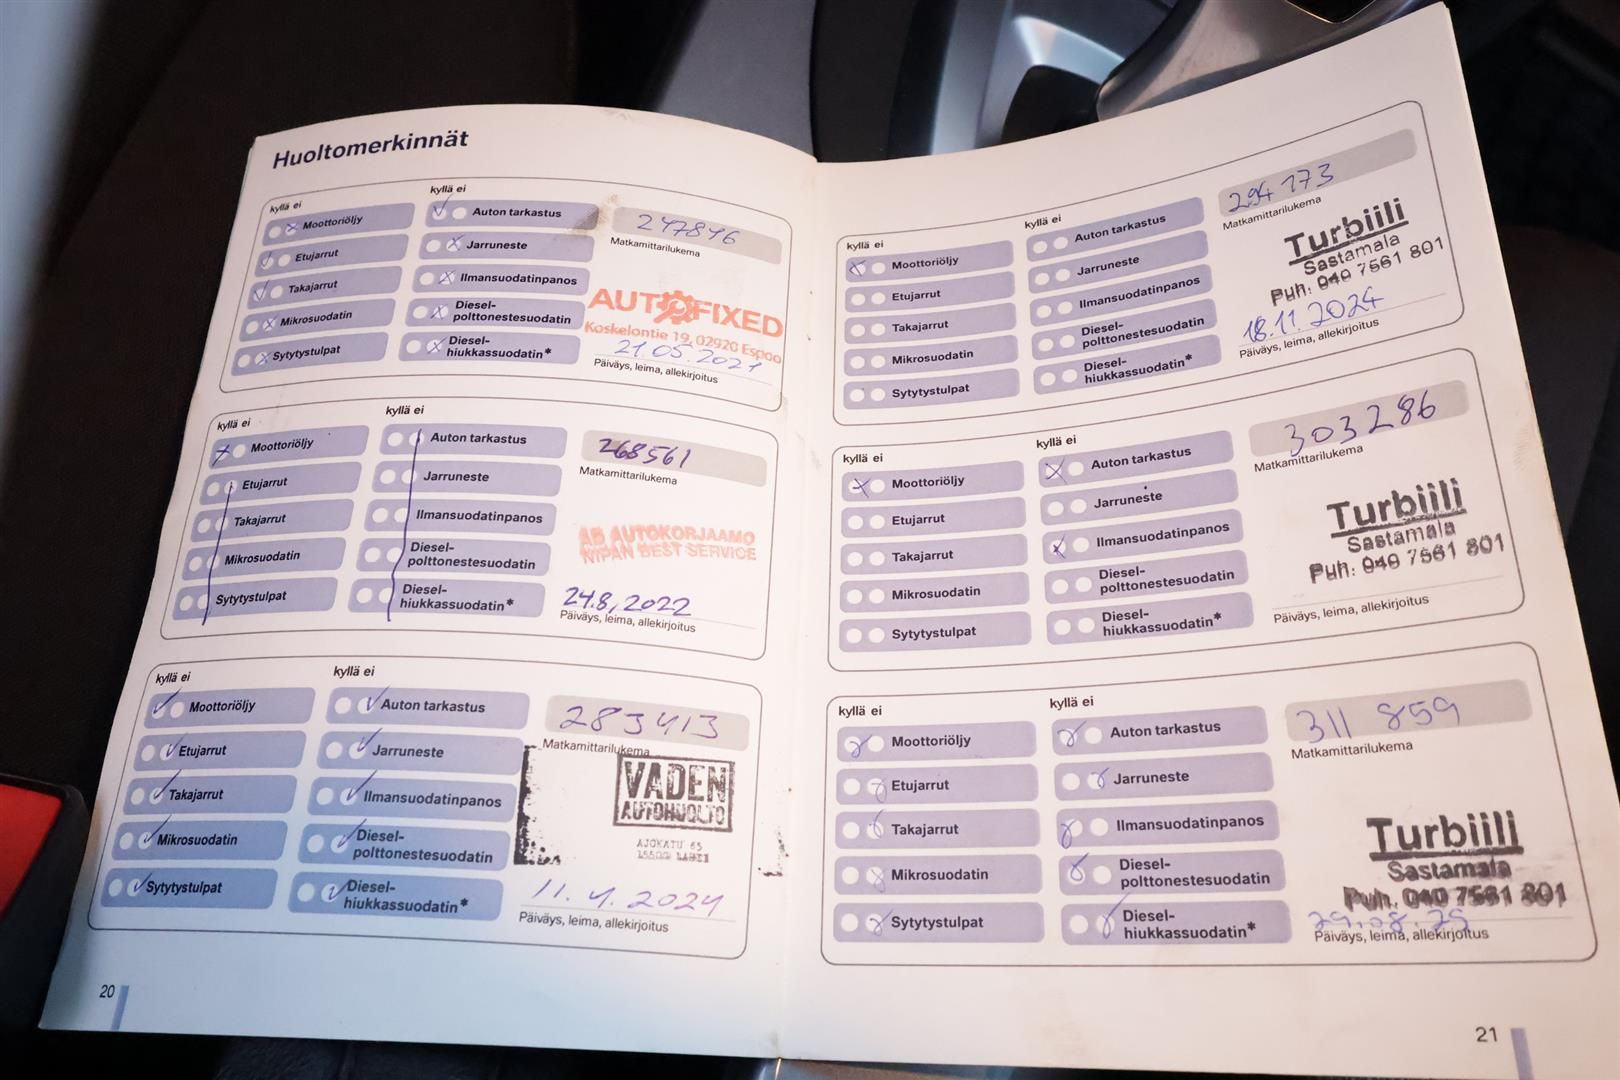 Huoltomerkinnät
kyllä ei
kyllä ei
Moottoriöljy
Etujarrut
Takajarrut
Mikrosuodatin
Sytytystulpat
Auton tarkastus
Jarruneste
Ilmansuodatinpanos
Diesel-
polttonestesuodatin
Diesel-
hiukkassuodatin*
247846
Matkamittarilukema
AUTOFIXED
Koskelontie 19, 02920 Espoo
21.05.2021
Päiväys, leima, allekirjoitus
kyllä ei
kyllä ei
Moottoriöljy
Etujarrut
Takajarrut
Mikrosuodatin
Sytytystulpat
Auton tarkastus
Jarruneste
Ilmansuodatinpanos
Diesel-
polttonestesuodatin
Diesel-
hiukkassuodatin*
268561
Matkamittarilukema
AB AUTOKORJAAMO
NIPAN BEST SERVICE
24.8,2022
Päiväys, leima, allekirjoitus
kyllä ei
kyllä ei
Moottoriöljy
Etujarrut
Takajarrut
Mikrosuodatin
Sytytystulpat
Auton tarkastus
Jarruneste
Ilmansuodatinpanos
Diesel-
polttonestesuodatin
Diesel-
hiukkassuodatin*
283413
Matkamittarilukema
VADEN
AUTOHUOLTO
AJOKATU 65
11.4.2024
Päiväys, leima, allekirjoitus
20
kyllä ei
kyllä ei
Moottoriöljy
Etujarrut
Takajarrut
Mikrosuodatin
Sytytystulpat
Auton tarkastus
Jarruneste
Ilmansuodatinpanos
Diesel-
polttonestesuodatin
Diesel-
hiukkassuodatin*
294173
Matkamittarilukema
Turbiili
Sastamala
Puh: 040 7561 801
18.11.2024
Päiväys, leima, allekirjoitus
kyllä ei
kyllä ei
Moottoriöljy
Etujarrut
Takajarrut
Mikrosuodatin
Sytytystulpat
Auton tarkastus
Jarruneste
Ilmansuodatinpanos
Diesel-
polttonestesuodatin
Diesel-
hiukkassuodatin*
303286
Matkamittarilukema
Turbiili
Sastamala
Puh: 040 7561 801
Päiväys, leima, allekirjoitus
kyllä ei
kyllä ei
Moottoriöljy
Etujarrut
Takajarrut
Mikrosuodatin
Sytytystulpat
Auton tarkastus
Jarruneste
Ilmansuodatinpanos
Diesel-
polttonestesuodatin
Diesel-
hiukkassuodatin*
311 859
Matkamittarilukema
Turbiili
Sastamala
Puh. 040 7561 801
29.08.25
Päiväys, leima, allekirjoitus
21